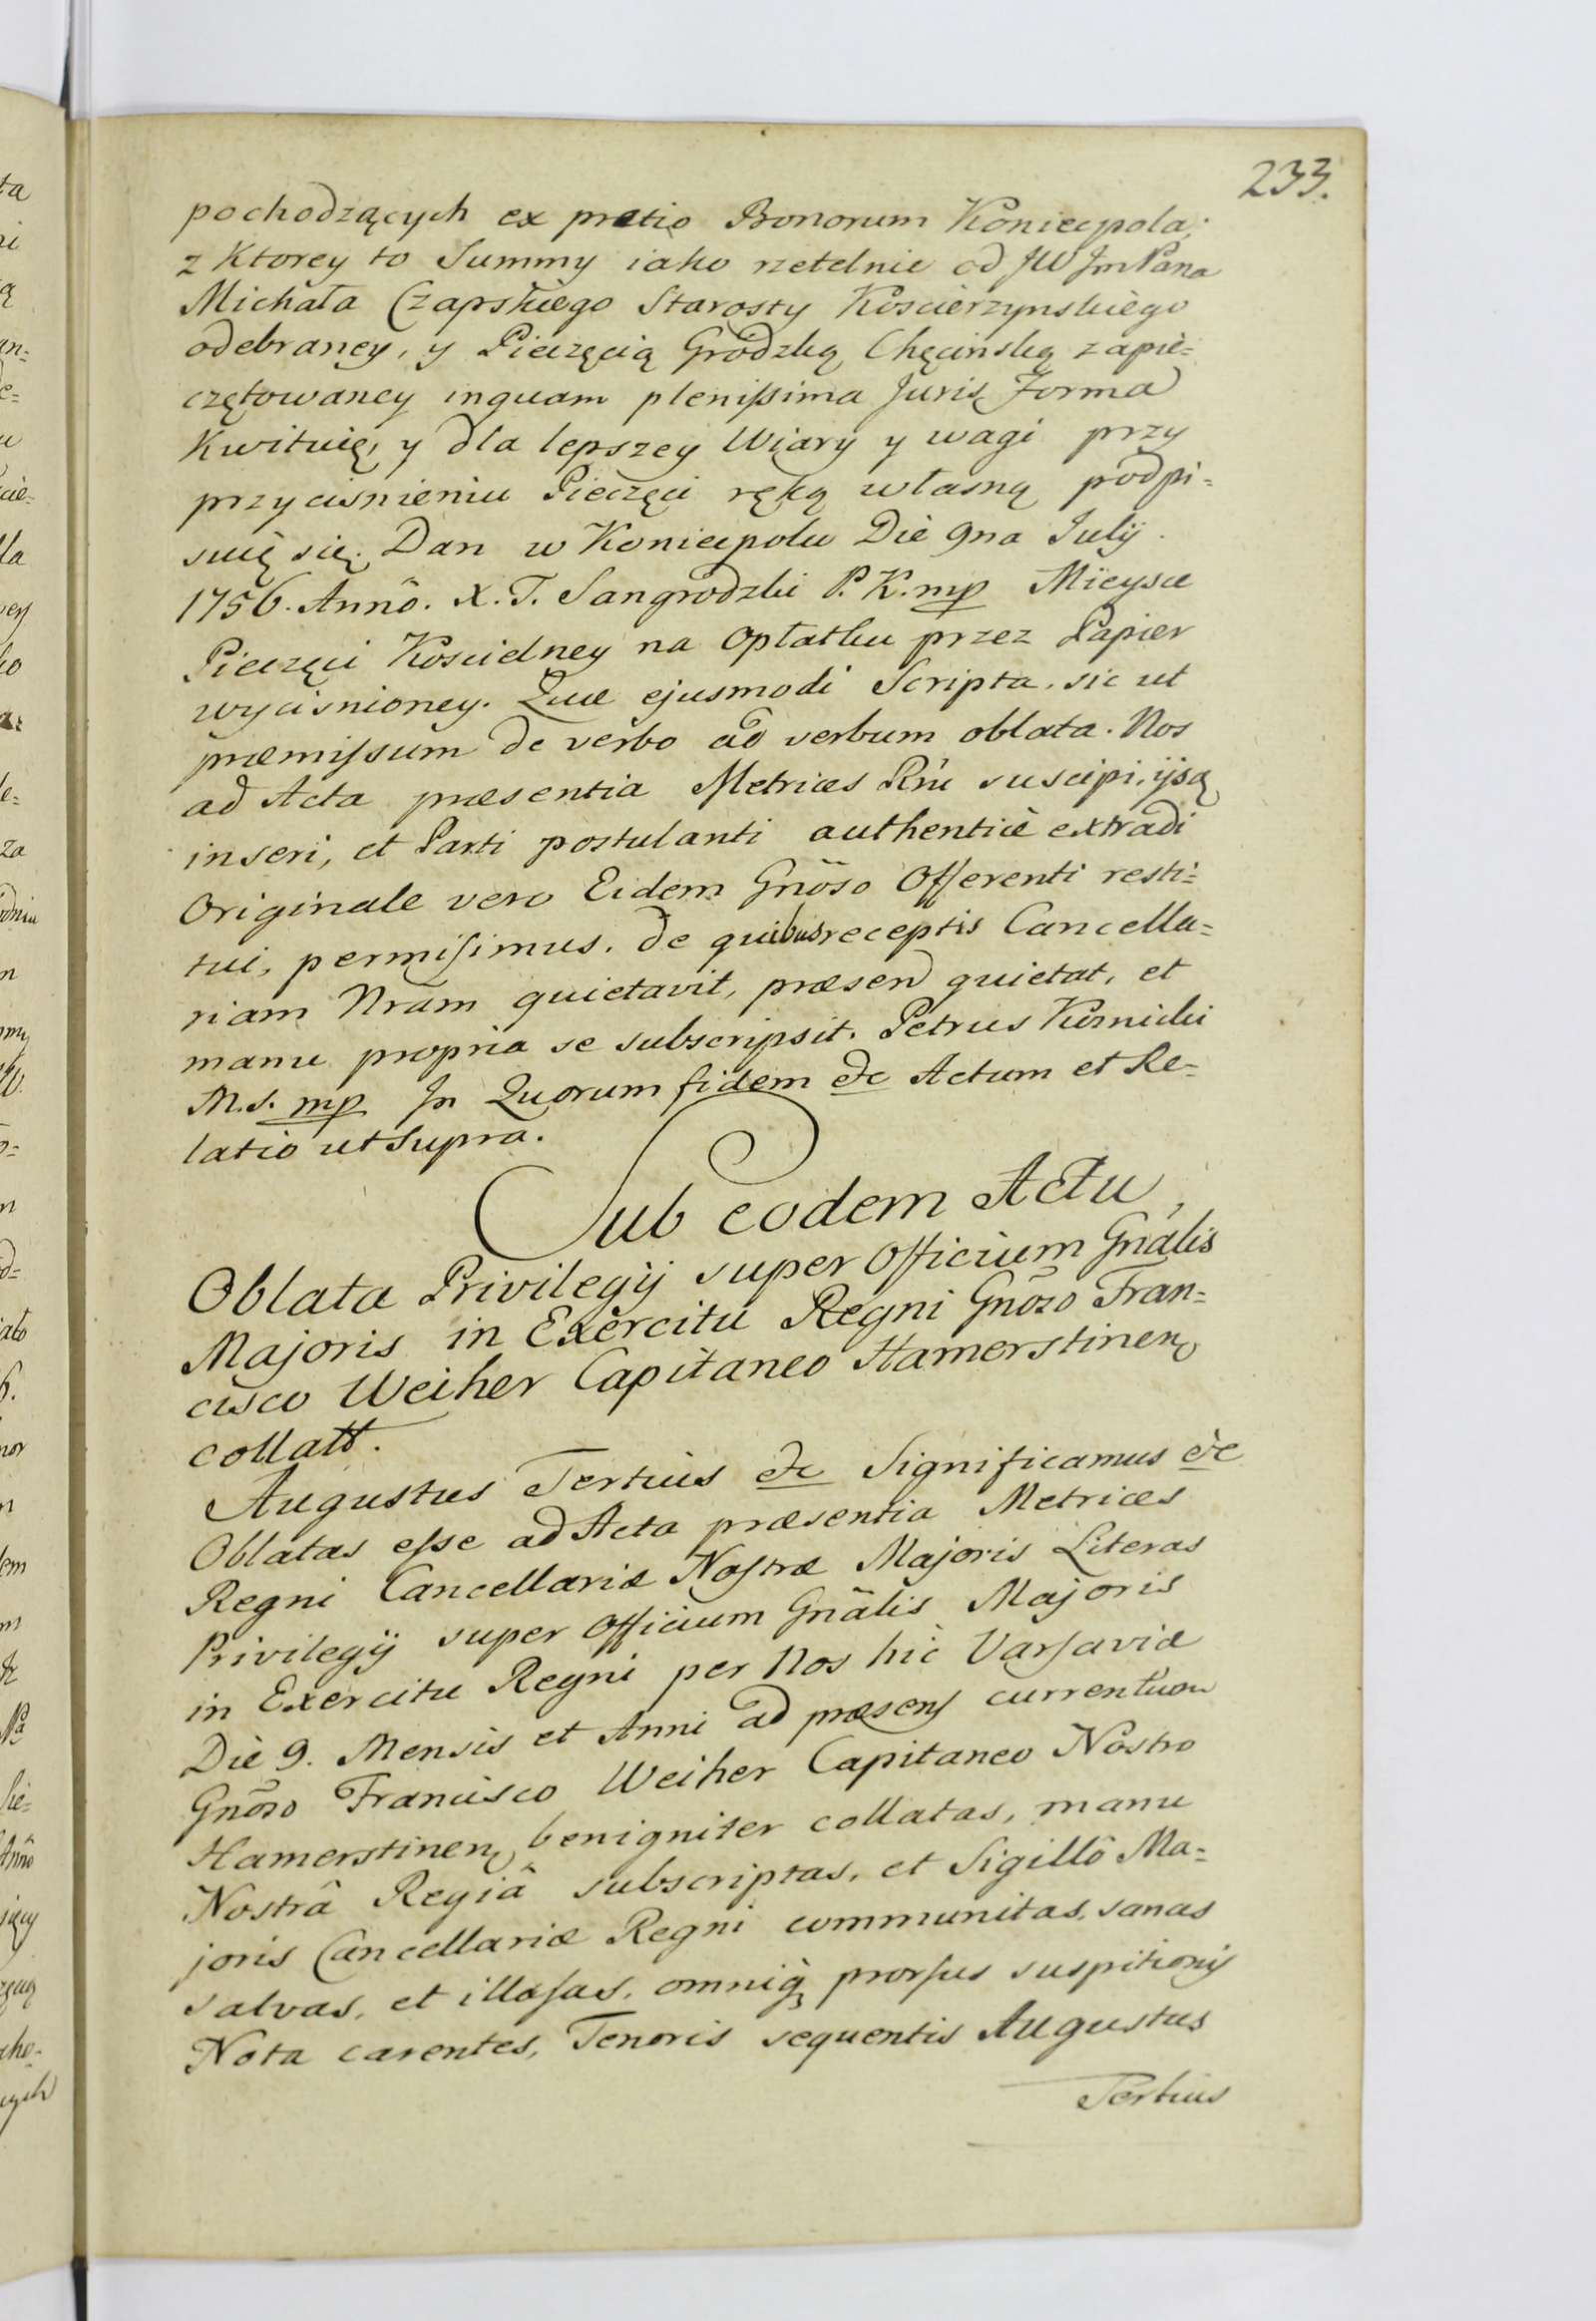 233.
pochodzących ex pretio Bonorum Koniecpola;
z Ktorey to Summy iako rzetelnie od JW JmPana
Michała Czapskiego Starosty Koscierzynskiego
odebraney, y Pieczęcią Grodzką Chęcinską zapie=
czętowaney inquam plenissima Juris Forma
Kwituię, y dla lepszey Wiary y wagi przy
przycisnieniu Pieczęci ręką własną podpi=
suię się. Dan w Koniecpolu Die 9na Julij.
1756. Annô. X. T. Sangrodzki P. K. mp Mieysce
Pieczęci Koscielney na Opłatku przez Papier
wycisnioney. Quæ ejusmodi Scripta, sic ut
præmissum de verbo ad verbum oblata. Nos
ad Acta præsentia Metrices Rni suscipi, ijsq
inseri, et Parti postulanti authenticè extradi
Originale vero Eidem Gnoso Offerenti resti=
tui, permisimus. de quibus receptis Cancella=
riam Nram quietavit, præsen quietat, et
manu propria se subscripsit. Petrus Kornicki
M. S. mp In Quorum fidem etc Actum et Re=
latio ut Supra.
Sub eodem Actu,
Oblata Privilegij super Officium Gnalis
Majoris in Exercitu Regni Gnoso Fran=
cisco Weiher Capitaneo Hamerstinen
collatt.
Augustus Tertius etc Significamus etc
Oblatas esse ad Acta præsentia Metrices
Regni Cancellariæ Nostræ Majoris Literas
Privilegij super Officium Gnalis Majoris
in Exercitu Regni per Nos hic Varsaviæ
Die 9. Mensis et Anni ad præsens currentium
Gnoso Francisco Weiher Capitaneo Nostro
Hamerstinen benigniter collatas, manu
Nostrâ Regiâ subscriptas, et Sigillô Ma=
joris Cancellariæ Regni communitas, sanas
salvas, et illæsas, omniq prorsus suspitionis
Nota carentes, Tenoris sequentis Augustus
Tertius